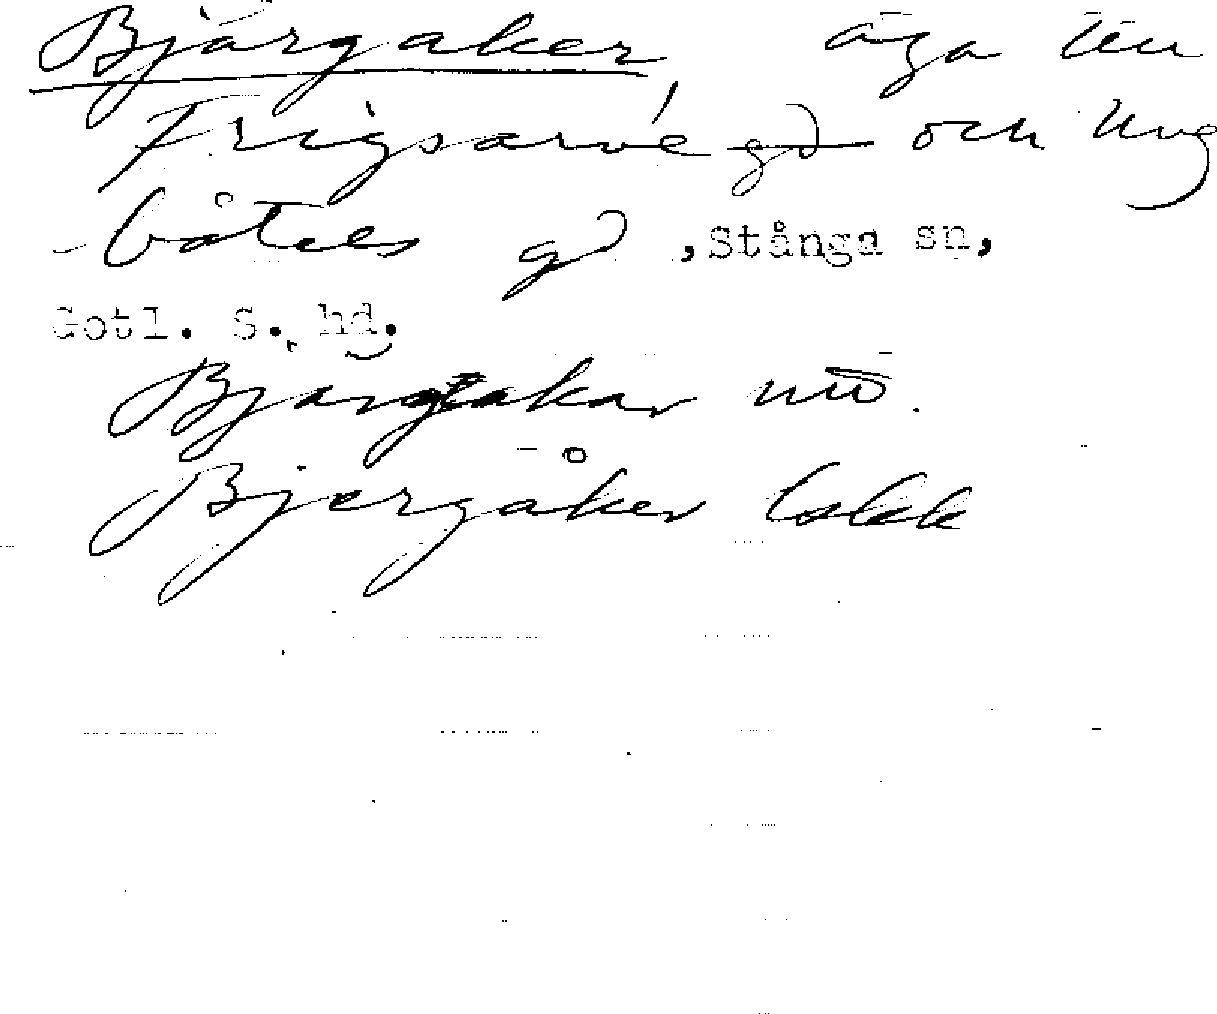 Bjärgaker, äga till
Frigsarve gd och Ung
-båtels gd , Stånga sn,
Gotl. S. hd.
Bjärgakar
Bjergåker